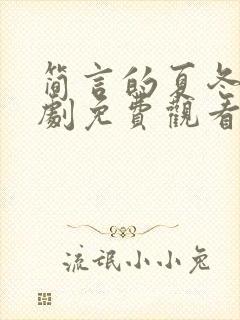 简言的夏冬
劇免費觀看
流氓小小兔